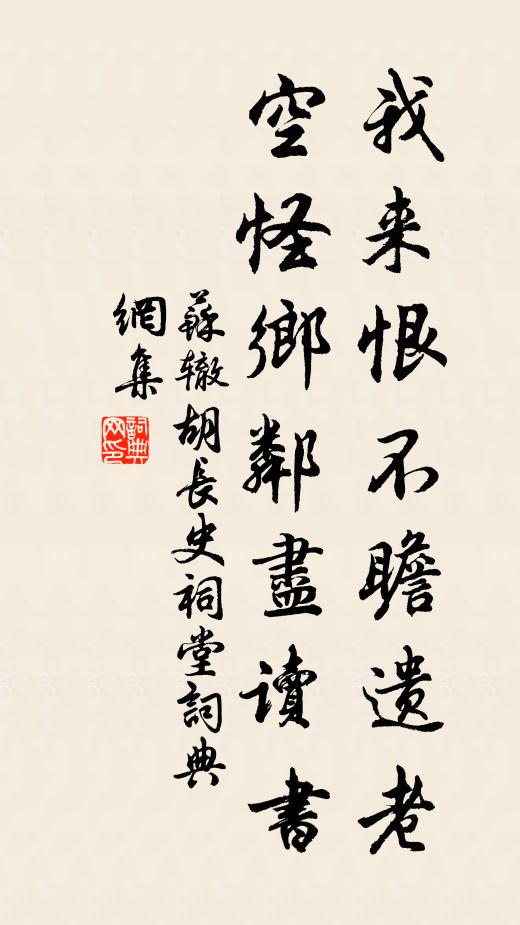 我来恨不瞻遗老
空怪鄉鄰盡讀書
蘇辙胡長史祠堂詞典
網集
詞典网印